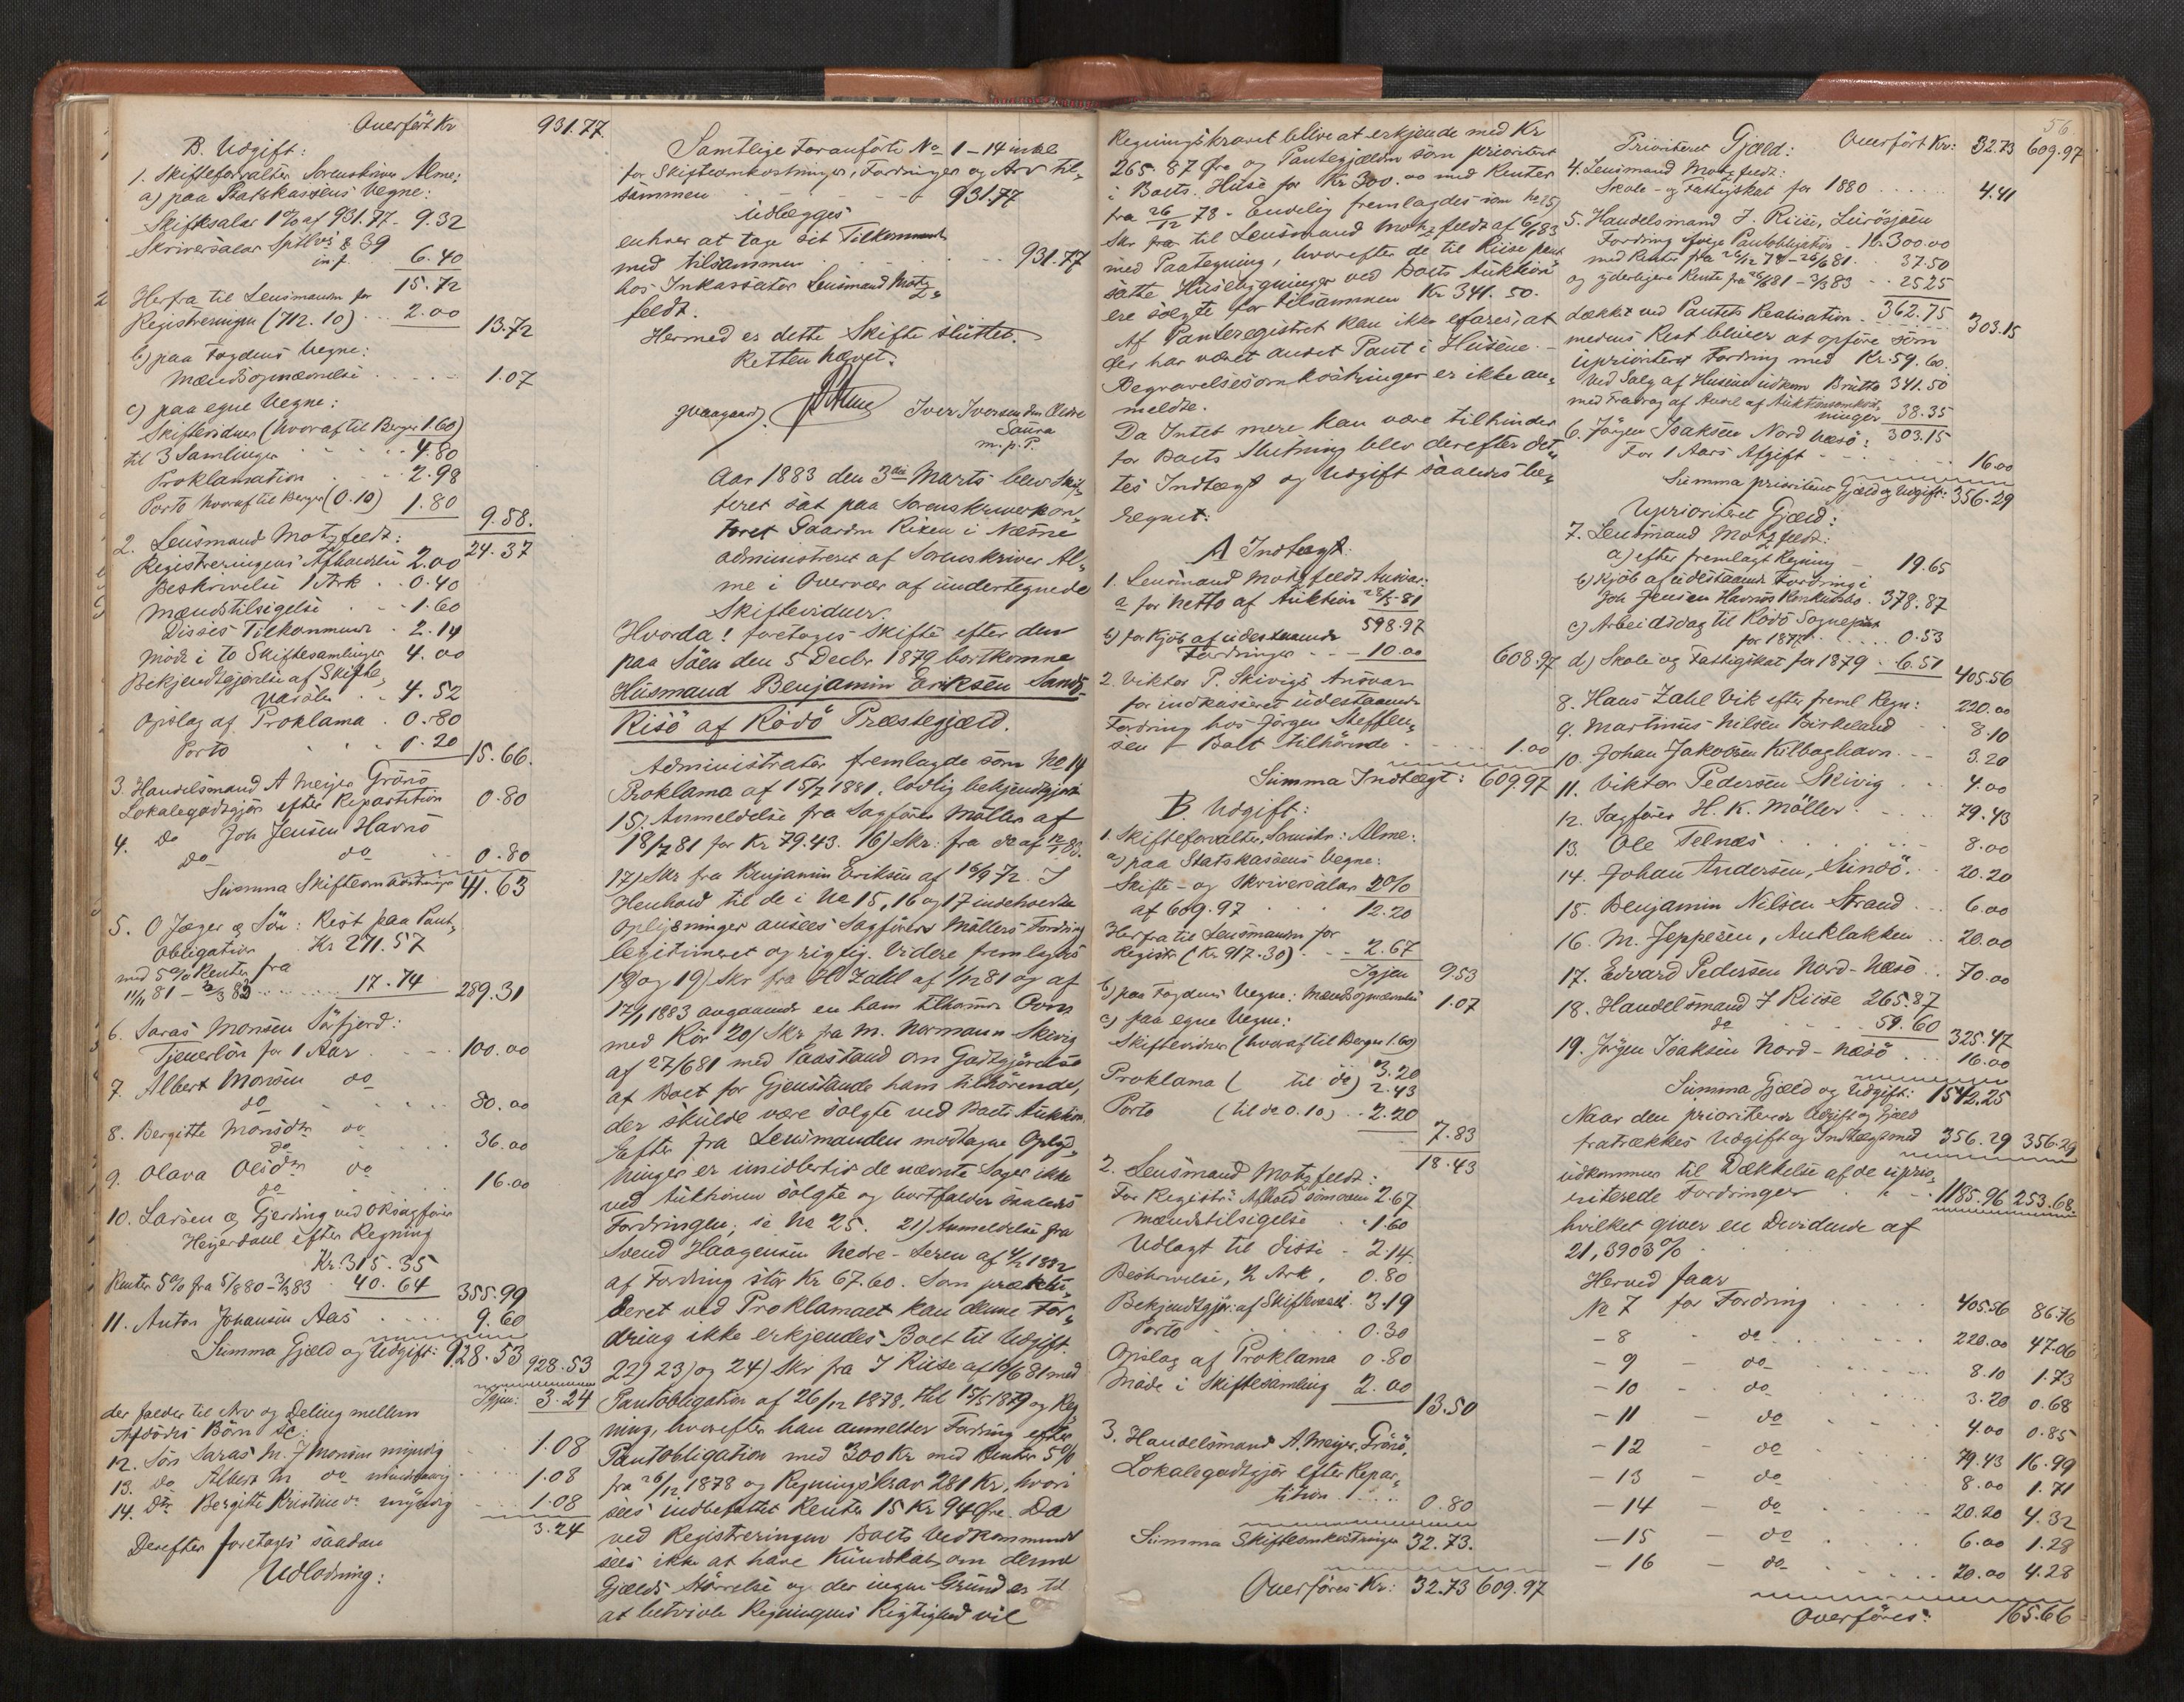 Overført Kr 931.77.
B. Udgift:
1. Skifteforvalter Sorenskriver Alme:
a) paa Statskassens Vegne:
Skiftesalar 1% af 931.77 - 9.32
Skriversalar Sptlvs § 39
6.40
15.72
Herfra til Lensmanden for
Registreringen (712.10) . . 2.00 13.72
b) paa Fogdens Vegne:
Mændsopnævnelse . . . . 1.07
c) paa egne Vegne:
Skiftevidner (hvoraf til Berger 1.60)
til 3 Samlinger . . . 4.80
Proklamation . . 2.98
Porto hvoraf til Berger (0.10) 1.80 9.58.
24.37
2. Lensmand Motzfeldt:
Registreringens Afholdelse 2.00
Beskrivelse 1 Ark . . 0.40
Mændstilsigelse . . 1.60
Disses Tilkommende . 2.14
Møde i to Skiftesamlinger 4.00
Bekjendtgjørelse af Skifte-
varsler . . 4.52
Opslag af Proklama . 0.80
Porto . . . 0.20 15.66.
3. Handelsmand A Meyer Grønø
Lokalegodtgjør. efter Repartition 0.80
4. do Joh Jensen Havnø
do do . . 0.80
Summa Skifteomkostninger 41.63
5. O Jæger & Søn: Rest paa Pant-
obligation Kr 271.57
med 5% Renter fra
11/11 81 - 3/3 83 . . . . 17.74 289.31
6. Saras Monsen Sørfjord:
Tjenerløn for 1 Aar . . . 100.00
7. Albert Monsen do
do . . . . 80.00
8. Bergitte Monsdtr do
do . . . 36.00
9. Olava Olsdtr do
do . . . 16.00
10. Larsen & Gjerding ved Oksagfører
Heyerdahl efter Regning
Kr. 315.35
Renter 5% fra 5/8 80 - 3/3 83 . 40.64 355.99
11. Anton Johansen Aas . . . . 9.60
Summa Gjæld og Udgift: 928.53 928.53
Igjen: 3.24
der falder til Arv og Deling mellem
Afdødes Børn sc:
12. Søn Saras M. J Monsen myndig . . 1.08
13. do Albert M do mindreaarig . . . 1.08
14. Dtr Bergitte Kristine do myndig . . . 1.08
3.24
Derefter foretoges saadan
Udlodning:
Samtlige foranførte No 1-14 inkl
for Skifteomkostninger, Fordringer og Arv til-
sammen . . . . 931.77
Udlægges
enhver at tage sit Tilkommende
med tilsammen . . . . . 931.77
hos Inkassator Lensmand Motz-
feldt.
Hermed er dette Skifte sluttet.
Retten hævet.
Alme Iver Iversen den Ældre
Saura
m. p. P.
Aar 1883 den 3die Marts blev Skif-
teret sat paa Sorenskriverkon-
toret Gaarden Rixen i Næsne
administreret af Sorenskriver Al-
me i Overvær af undertegnede
Skiftevidner.
Hvorda! foretoges Skifte efter den
paa Søen den 5 Decbr 1879 bortkomne
Husmand Benjamin Eriksen Sands-
Risø af Rödö Præstegjæld.
Administrator fremlagde som No 14
Proklama af 15/7 1881, lovlig bekjendtgjort
15) Anmeldelse fra Sagfører Møller af
18/7 81 for Kr 79.43. 16) Skr. fra do af 12/1 83.
17) Skr fra Benjamin Eriksen af 16/9 72. I
Henhold til de i No 15, 16 og 17 indeholdte
Oplysninger ansees Sagfører Møllers Fordring
legitimeret og rigtig. Videre fremlagdes
18) og 19) Skr fra H Zahl af 1/12 81 og af
17/1 1883 angaaende en ham tilkommende Ovn
med Rør 20) Skr fra M. Normann Skivig
af 27/6 81 med Paastand om Godtgjørelse
af Boet for Gjenstande ham tilhørende,
der skulde være solgte ved Boets Auktion.
Efter fra Lensmanden modtagne Oplys-
ninger er imidlertid de nævnte Sager ikke
ved Auktionen solgte og bortfalder saaledes
Fordringen, se No 25. 21) Anmeldelse fra
Svend Haagensen Nedre-Leren af 4/2 1882
af Fordring stor Kr 67.60. Som præklu-
deret ved Proklamaet kan denne For-
dring ikke erkjendes Boet til Udgift.
22) 23) og 24) Skr fra J Riise af 10/6 81 med
Pantobligation af 26/12 1878, thl 15/5 1879 og Reg-
ning, hvorefter han anmelder Fordring efter
Pantobligation med 300 Kr med Renter 5%
fra 26/12 1878 og Regningskrav 281 Kr, hvori
sees indbefattet Renter 15 Kr 94 Øre. Da
ved Registreringen Boets Vedkommende
sees ikke at have Kundskab om denne
Gjælds Størrelse og der ingen Grund er til
at betvivle Regningens Rigtighed vil
Regningskravet blive at erkjende med Kr
265.87 Øre og Pantegjælden som prioriteret
i Boets Huse for Kr 300.00 med Renter
fra 26/12 78. Endelig fremlagdes som No 25)
Skr fra til Lensmand Motzfeldt af 6/1 83
med Paategning, hvorefter de til Riise pant-
satte Husebygninger ved Boets Auktion
ere solgte for tilsammen Kr 341.50.
Af Panteregistret kan ikke erfares, at
der har været andet Pant i Husene.
Begravelsesomkostninger er ikke an-
meldte.
Da Intet mere kan være tilhinder
for Boets Slutning blev derefter det-
tes Indtægt og Udgift saaledes be-
regnet:
A Indtægt:
1. Lensmand Motzfeldt Ansvar:
a for Netto af Auktion 28/5-81
598.97
b) for Kjøb af udestaaende
Fordringer . . . 10.00 608.97
2. Viktor P. Skivigs Ansvar
for indkasseret udestaaende
Fordring hos Jørgen Steffen-
sen Boet tilhørende . . . . 1.00
Summa Indtægt: 609.97
B. Udgift:
1. Skifteforvalter, Sorenskr: Alme:
a) paa Statskassens Vegne:
Skifte- og Skriversalar 2%
af 609.97 . . . 12.20
Herfra til Lensmanden for
Registr (Kr 917.30) . . . 2.67
Igjen 9.53
b) paa Fogdens Vegne: Mændsopnævnelse 1.07
c) paa egne Vegne:
Skiftevidner (hvoraf til Berger 1.60)
3.20
Proklama ( til do) 2.43
Porto (til do 0.10) . . 2.20 7.83
18.43
2. Lensmand Motzfeldt:
For Registr: Afhold som oven 2.67
Mændstilsigelse . . 1.60
Udlagt til disse . 2.14.
Beskrivelse, 2 Ark, 0.80
Bekjendtgjør: af Skiftevarsel . 3.19
Porto . . . . 0.30
Opslag af Proklama 0.80
Møde i Skiftesamling 2.00
13.50
3. Handelsmand A. Meyer, Grønø,
Lokalegodtgjør efter Repar-
tition . . . . 0.80
Summa Skifteomkostninger 32.73.
Overføres Kr: 32.73 609.97
56.
Prioriteret Gjæld: Overført Kr: 32.73 609.97
4. Lensmand Motzfeldt:
Skole- og Fattigskat for 1880 . . . . . . 4.41
5. Handelsmand J. Riise, Lurøsjøen
Fordring ifølge Pantobligation - Kr 300.00
med Renter fra 26/12 78 - 26/6 81 . . 37.50
og yderligere Rente fra 26/6 81 - 3/3 83 . . 25.25
dækket ved Pantets Realisation . . 362.75 303.15
medens Rest bliver at opføre som
uprioriteret Fordring med Kr. 59.60.
Ved Salg af Husene udkom Brutto 341.50
med Fradrag af Andel af Auktionsomkost-
ninger 38.35
303.15
6. Jörgen Isaksen Nord Næsö:
For 1 Aars Afgift . . . . . 16.00
Summa prioriteret Gjæld og Udgift: 356.29
Uprioriteret Gjæld:
7. Lensmand Motzfeldt:
a) efter fremlagt Regning - 19.65
b) Kjøb af udestaaende Fordring i
Joh Jensen Havnøs Konkursbo . 378.87
c) Arbeidsdag til Rödö Sognepræst
for 1879 . . . . . 0.53
d) Skole og Fattigskat for 1879 . 6.51 405.56
8. Hans Zahl Vik efter freml Regn: 220.00
9. Martinus Nilsen Birkeland . . 8.10
10. Johan Jakobsen Kilboghavn . . . 3.20
11. Viktor Pedersen Skivig . . . 4.00
12. Sagfører H. K. Möller . . . . . 79.43
13. Ole Selnæs . . . . . . . 8.00
14. Johan Andersen, Sundö . . . 20.20
15. Benjamin Nilsen Strand . . . 6.00
16. M. Jeppesen, Auklakken . . 20.00
17. Edvard Pedersen Nord-Næsö . . 70.00
18. Handelsmand J Riise 265.87
do . . . . 59.60 325.47
19. Jörgen Isaksen Nord-Næsö . . . 16.00
Summa Gjæld og Udgift: 1542.25
Naar den prioriterede Udgift og Gjæld
fratrækkes Udgift og Indtægt med 356.29 356.29
udkommer til Dækkelse af de uprio-
riterede Fordringer . . . . 1185.96 253.68.
hvilket giver en Dividende af
21,3903%
Herved faar
No 7 for Fordring . . . . 405.56 86.76
- 8 - do . . . . . . 220.00 47.06
- 9 - do . . . . . . 8.10 1.73
- 10 - do . . . . . 3.20 0.68
- 11 - do . . . . . 4.00 0.85
- 12 - do . . . . . 79.43 16.99
- 13 - do . . . . . 8.00 1.71
- 14 - do . . . . . 20.20 4.32
- 15 - do . . . . . 6.00 1.28
- 16 - do . . . . . 20.00 4.28
Overføres: 165.66